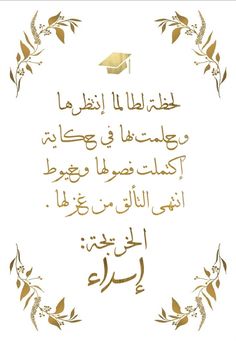 لحظة لطالما إنتظرها
وحلمت بها في حكاية
إكتملت فصولها وخيوط
انتهى التألق من غزلها .
الخريجة :
إسراء